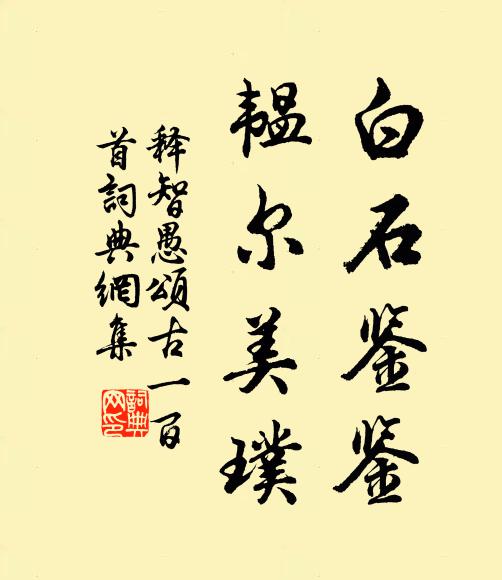 白石鉴鉴
韫尔美璞
释智愚颂古一百
首詞典網集
詞典
网印